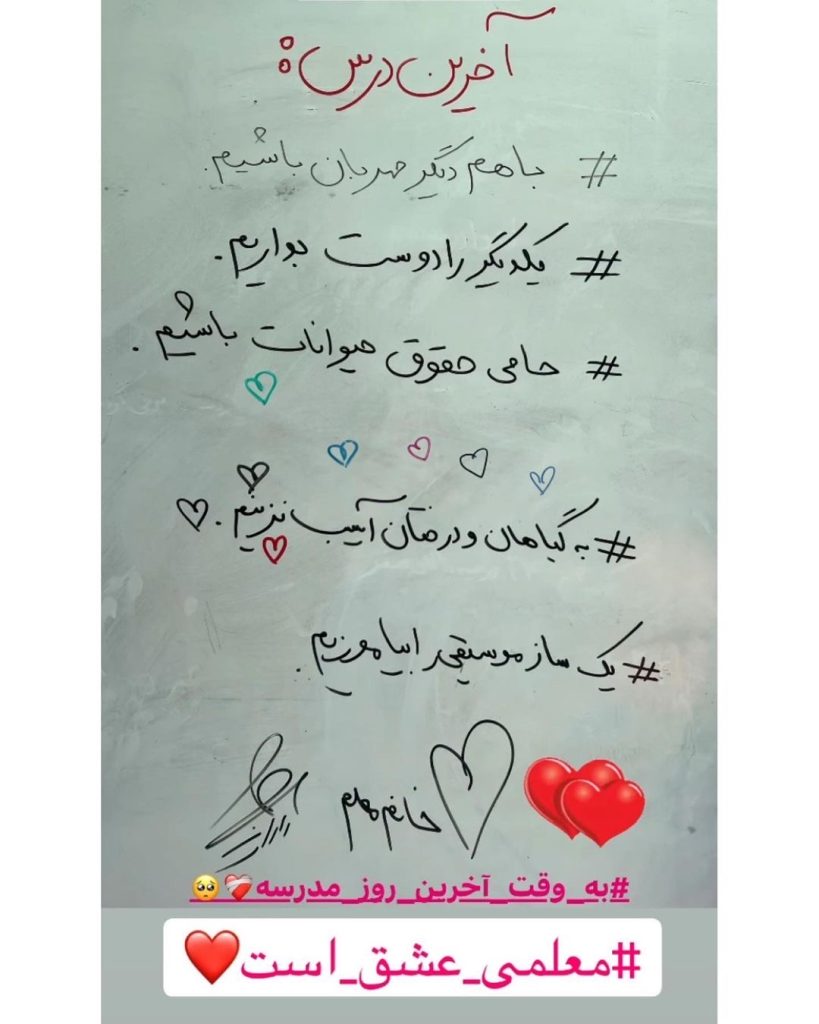 آخرین درس:
# با هم دیگر مهربان باشیم.
# یکدیگر را دوست بداریم.
# حامی حقوق حیوانات باشیم.
# به گیاهان و درختان آسیب نزنیم.
# یک ساز موسیقی را بیاموزیم.
خانم معلم
#به_وقت_آخرین_روز_مدرسه❤️‍🩹🥺
#معلمی_عشق_است❤️